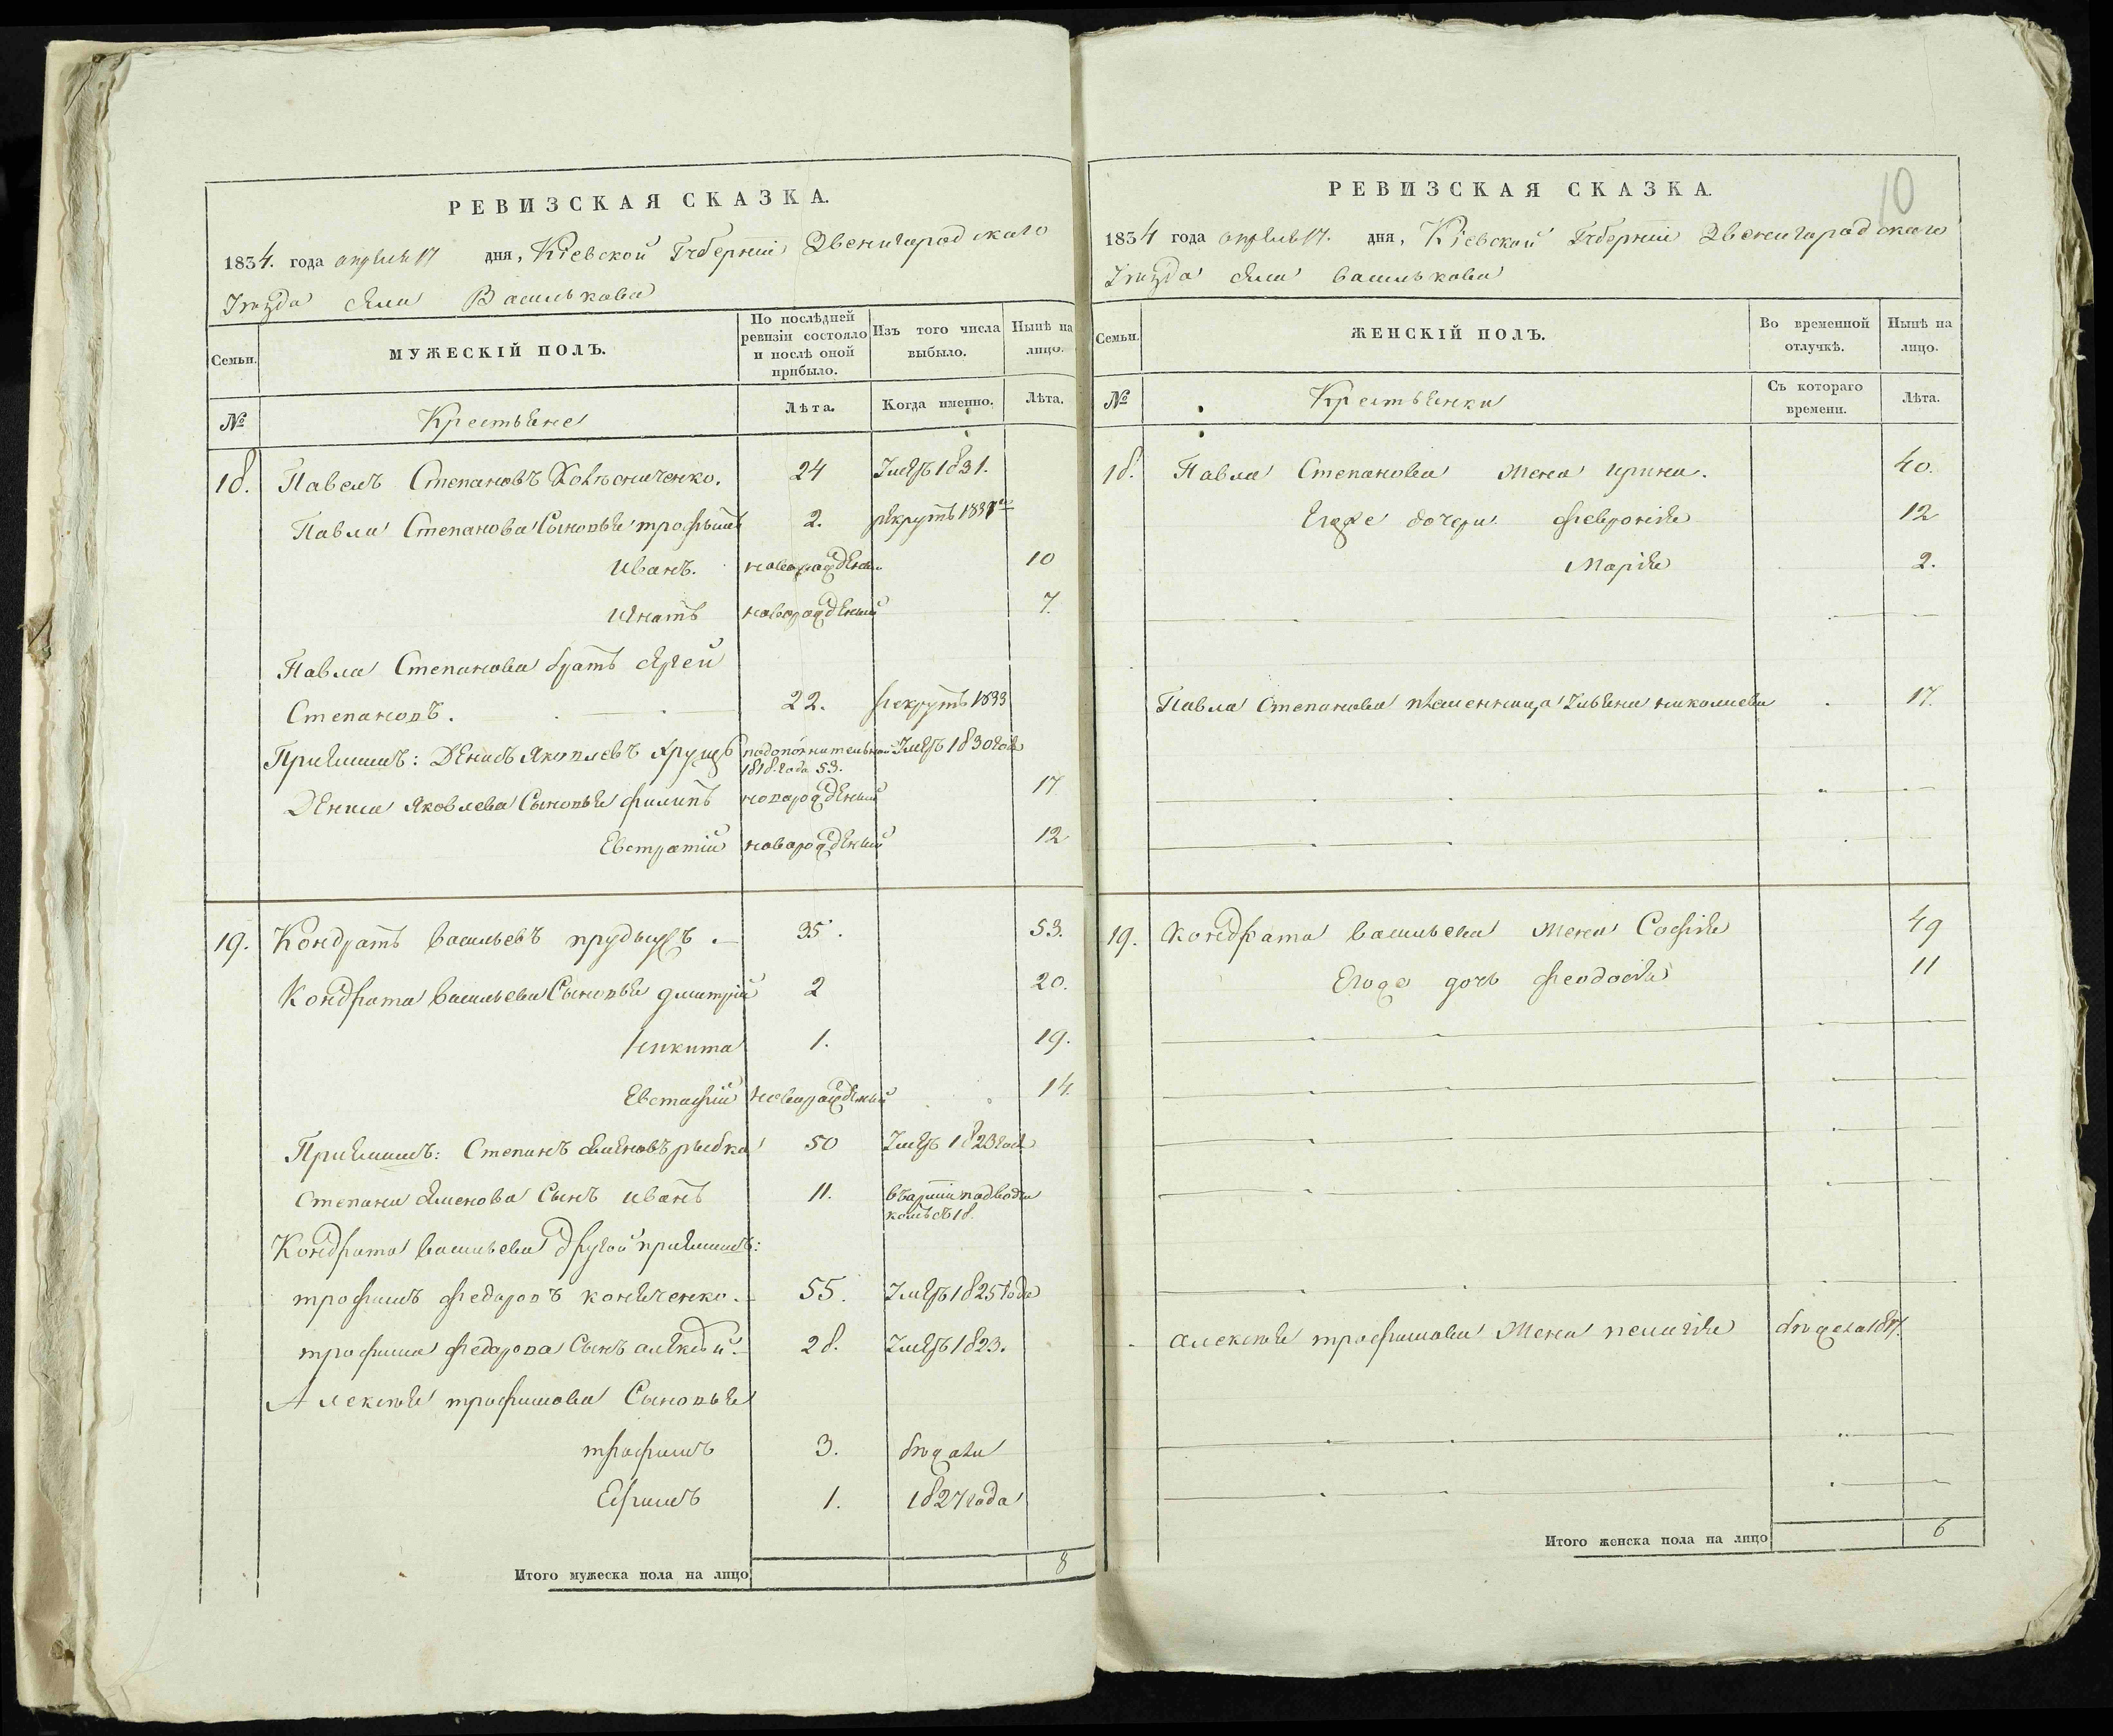 РЕВИЗСКАЯ СКАЗКА.
1834. года апреля 17 дня, Кіевской Губерніи Звенигородскаго
Уезда села Василькова
Семьи. МУЖЕСКІЙ ПОЛЪ. По послѣдней ревизіи состояло и послѣ оной прибыло. Изъ того числа выбыло. Нынѣ на лицо.
№ Крестьяне Лѣта. Когда именно. Лѣта.
18. Павелъ Степановъ 24 Умеръ 1831.
Павла Степанова Сыновья трофымъ 2. рекрутъ
Иванъ. новорожденъ 10
Игнатъ новорожденый 7.
Павла Степанова братъ сергей
Степановъ. 22. рекрутъ 1833
Приемышъ: Денисъ Яковлевъ 1818 года 53. Умеръ 1830 года
Дениса Яковлева Сыновья филипъ новорожденый 17
Евстратій новорожденый 12
19. Кондратъ васильевъ 35. 53.
Кондрата васильева Сыновья дмитрій 2 20.
Никита 1. 19.
Евстафій новорожденый 14.
Приемышъ: Степанъ семеновъ рыбка 50 Умеръ 1823 года
Степана семенова Сынъ иванъ 11.
Кондрата васильева другой приемышъ:
трофимъ федоровъ 55. Умеръ 1825 года
трофима федорова Сынъ алексей 28. Умеръ 1823.
Алексея трофимова Сыновья
трофимъ 3. бежали
Ефимъ 1. 1827 года
Итого мужеска пола на лицо 8
РЕВИЗСКАЯ СКАЗКА. 10
1834 года апреля 17. дня, Кіевской Губерніи Звенигородскаго
Уезда села василькова
Семьи. ЖЕНСКІЙ ПОЛЪ. Во временной отлучкѣ. Нынѣ на лицо.
№ Крестьянки Съ котораго времени. Лѣта.
18. Павла Степанова жена ирина. 40.
Егоже дочери феверонія 12
Марія 2.
Павла Степанова племенница Ульяна николаева 17.
19. Кондрата васильева жена Софія 49
Егоже дочь феодосія 11
алексея трофимова жена пелагія
Итого женска пола на лицо 6